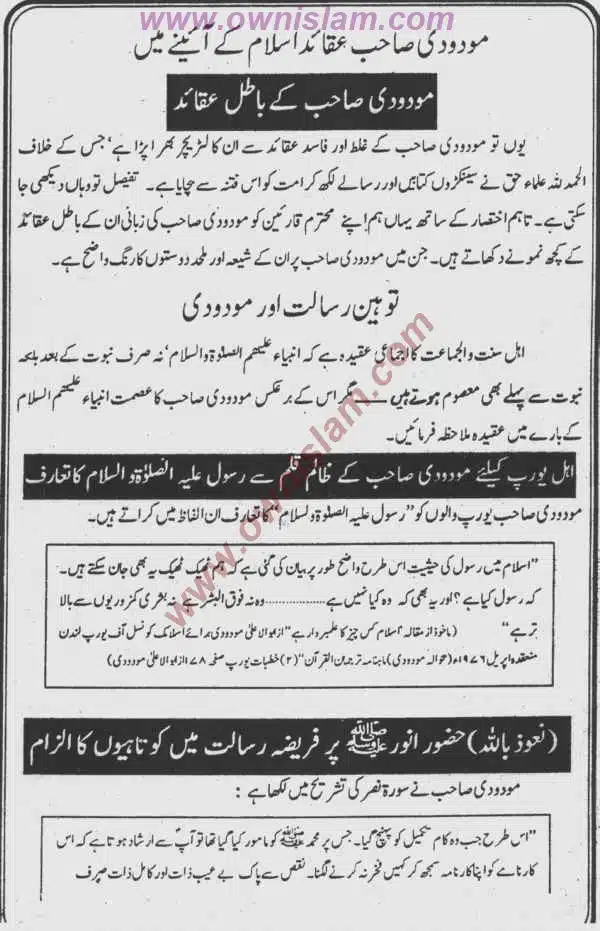 www.ownislam.com
مودودی صاحب عقائد اسلام کے آئینے میں
مودودی صاحب کے باطل عقائد
یوں تو مودودی صاحب کے غلط اور فاسد عقائد سے ان کا لٹریچر بھرا پڑا ہے‘ جس کے خلاف
الحمد للہ علماء حق نے سینکڑوں کتابیں اور رسالے لکھ کر امت کو اس فتنہ سے بچایا ہے۔ تفصیل تو وہاں دیکھی جا
سکتی ہے۔ تاہم اختصار کے ساتھ یہاں ہم اپنے محترم قارئین کو مودودی صاحب کی زبانی ان کے باطل عقائد
کے کچھ نمونے دکھاتے ہیں۔ جن میں مودودی صاحب پر ان کے شیعہ اور ملحد دوستوں کا رنگ واضح ہے۔
توہین رسالت اور مودودی
اہل سنت والجماعت کا اجماعی عقیدہ ہے کہ انبیاء علیھم الصلوٰۃ والسلام‘ نہ صرف نبوت کے بعد بلکہ
نبوت سے پہلے بھی معصوم ہوتے ہیں ـــــ مگر اس کے برعکس مودودی صاحب کا عصمت انبیاء علیھم السلام
کے بارے میں عقیدہ ملاحظہ فرمائیں۔
اہل یورپ کیلئے مودودی صاحب کے ظالم قلم سے رسول علیہ الصلوٰۃ والسلام کا تعارف
مودودی صاحب یورپ والوں کو ”رسول علیہ الصلوٰۃ والسلام“ کا تعارف ان الفاظ میں کراتے ہیں۔
”اسلام میں رسول کی حیثیت اس طرح واضح طور پر بیان کی گئی ہے کہ ہم ٹھیک ٹھیک یہ بھی جان سکتے ہیں۔
کہ رسول کیا ہے؟ اور یہ بھی کہ وہ کیا نہیں ہے..................وہ نہ فوق البشر ہے نہ بشری کمزوریوں سے بالا
تر ہے“ (ماخوذ از مقالہ ”اسلام کس چیز کا علمبردار ہے“ از ابوالاعلیٰ مودودی برائے اسلامک کونسل آف یورپ لندن
منعقدہ اپریل ۱۹۷۶ء (حوالہ مودودی) ماہنامہ ترجمان القرآن“ (۲) خطبات یورپ صفحہ ۷۸ از ابوالاعلیٰ مودودی)
(نعوذ باللہ) حضور انور ﷺ پر فریضہ رسالت میں کوتاہیوں کا الزام
مودودی صاحب نے سورۃ نصر کی تشریح میں لکھا ہے :
”اس طرح جب وہ کام تکمیل کو پہنچ گیا۔ جس پر محمد ﷺ کو مامور کیا گیا تھا تو آپؐ سے ارشاد ہوتا ہے کہ اس
کارنامے کو اپنا کارنامہ سمجھ کر کہیں فخر نہ کرنے لگنا۔ نقص سے پاک بے عیب ذات اور کامل ذات صرف
www.ownislam.com